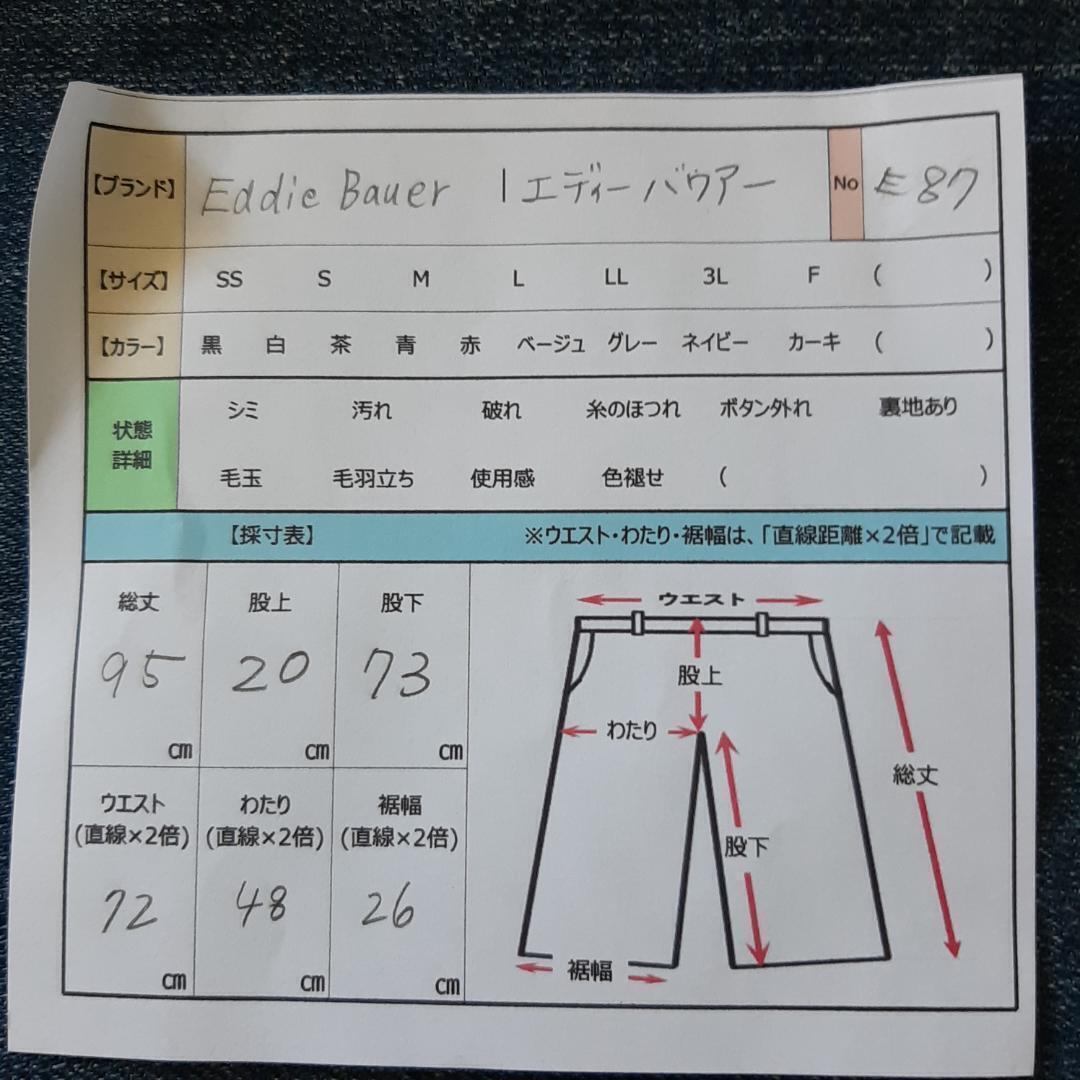 【ブランド】 Eddie Bauer | エディーバウアー No E87
【サイズ】 SS S M L LL 3L F ( )
【カラー】 黒 白 茶 青 赤 ベージュ グレー ネイビー カーキ ( )
状態
詳細
シミ 汚れ 破れ 糸のほつれ ボタン外れ 裏地あり
毛玉 毛羽立ち 使用感 色褪せ ( )
【採寸表】 ※ウエスト・わたり・裾幅は、「直線距離×2倍」で記載
総丈 股上 股下
95 20 73
cm cm cm
ウエスト わたり 裾幅
(直線×2倍) (直線×2倍) (直線×2倍)
72 48 26
cm cm cm
ウエスト
股上
わたり
総丈
股下
裾幅